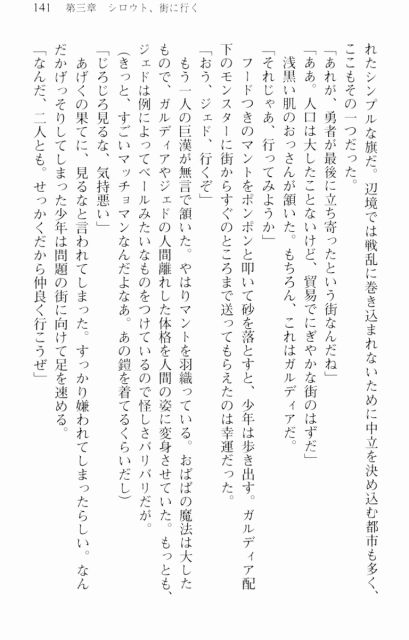 141　第三章　シロウト、街に行く
れたシンプルな旗だ。辺境では戦乱に巻き込まれないために中立を決め込む都市も多く、
ここもその一つだった。
「あれが、勇者が最後に立ち寄ったという街なんだね」
「ああ。人口は大したことないけど、貿易でにぎやかな街のはずだ」
浅黒い肌のおっさんが頷いた。もちろん、これはガルディアだ。
「それじゃあ、行ってみようか」
フードつきのマントをポンポンと叩いて砂を落とすと、少年は歩き出す。ガルディア配
下のモンスターに街からすぐのところまで送ってもらえたのは幸運だった。
「おう、ジェド、行くぞ」
もう一人の巨漢が無言で頷いた。やはりマントを羽織っている。おばばの魔法は大した
もので、ガルディアやジェドの人間離れした体格を人間の姿に変身させていた。もっとも、
ジェドは例によってベールみたいなものをつけているので怪しさバリバリだが。
(きっと、すごいマッチョマンなんだよなあ。あの鎧を着てるくらいだし)
「じろじろ見るな、気持悪い」
あげくの果てに、見るなと言われてしまった。すっかり嫌われてしまったらしい。なん
だかげっそりしてしまった少年は問題の街に向けて足を速める。
「なんだ、二人とも。せっかくだから仲良く行こうぜ」